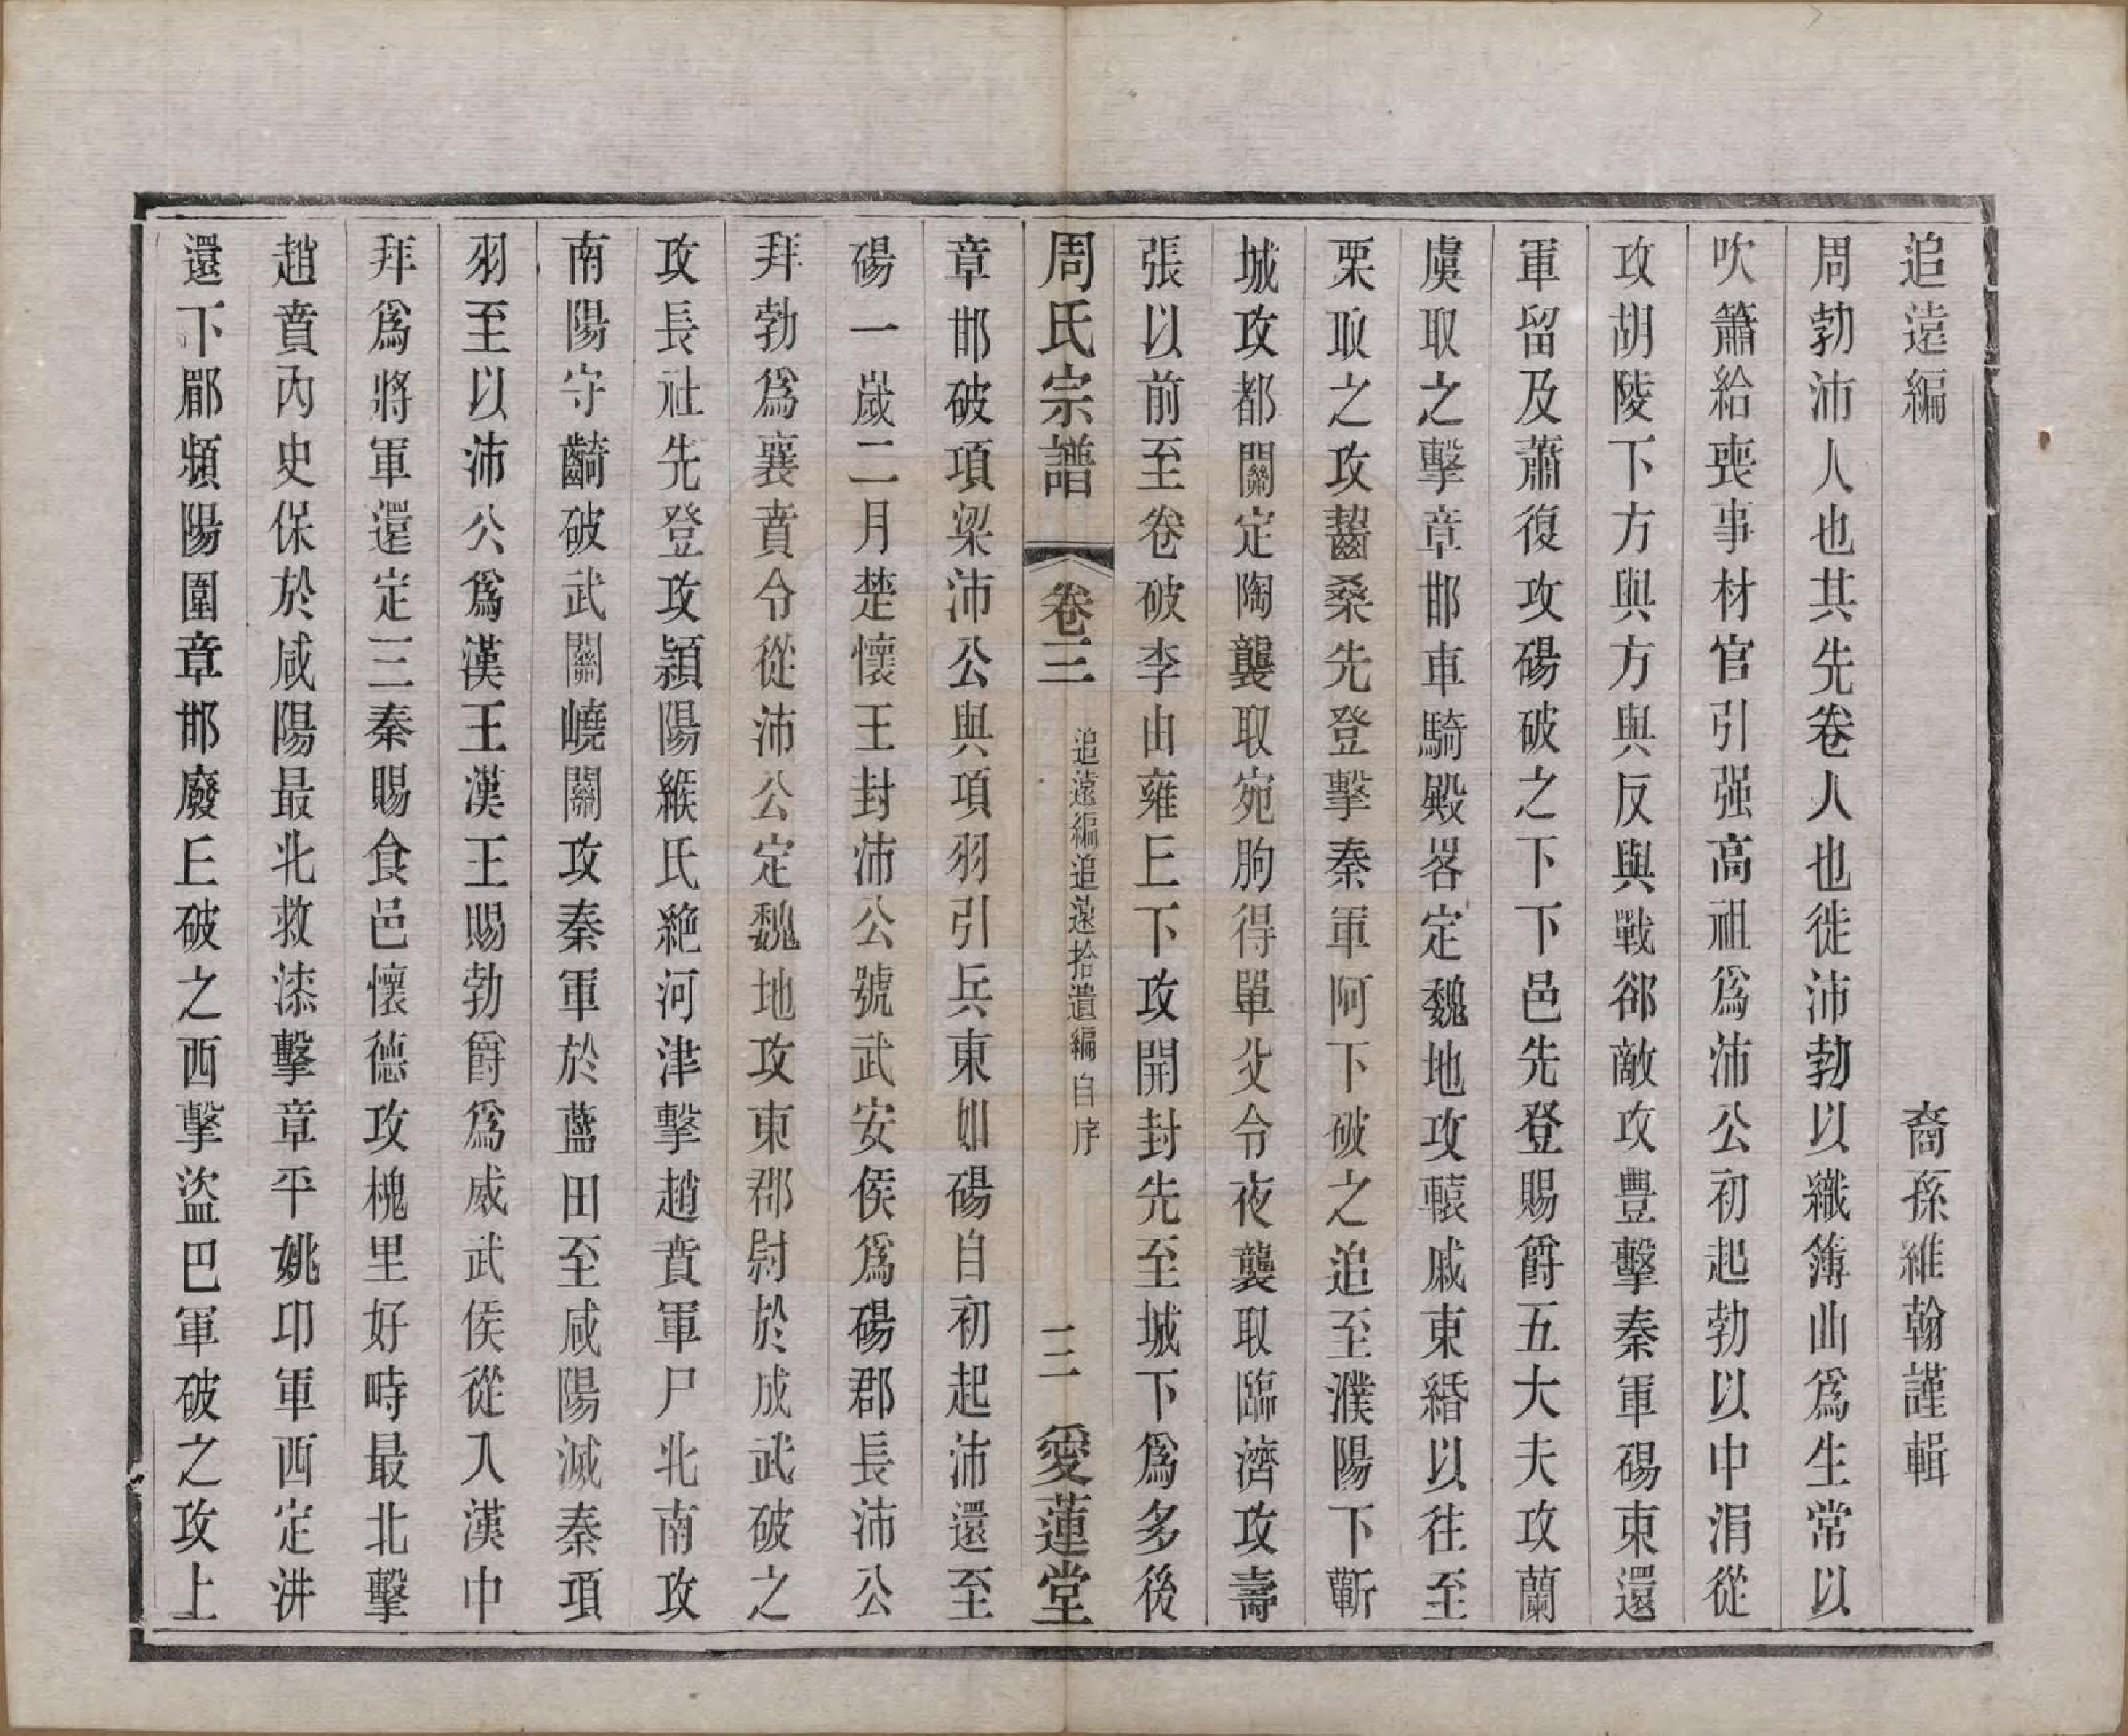 追遠編　裔孫維翰謹輯
周勃沛人也其先卷人也徙沛勃以織簿曲爲生常以
吹簫給喪事材官引强高祖爲沛公初起勃以中涓從
攻胡陵下方與方與反與戰郤敵攻豐擊秦軍碭東還
軍留及蕭復攻碭破之下下邑先登賜爵五大夫攻蘭
虞取之擊章邯車騎殿畧定魏地攻轅戚東緡以往至
栗取之攻齧桑先登擊秦軍阿下破之追至濮陽下蘄
城攻都關定陶襲取宛朐得單父令夜襲取臨濟攻壽
張以前至卷破李由雍丘下攻開封先至城下爲多後
周氏宗譜　卷三　追遠編追遠拾遺編自序　三　愛蓮堂
章邯破項梁沛公與項羽引兵東如碭自初起沛還至
碭一歲二月楚懷王封沛公號武安侯爲碭郡長沛公
拜勃爲襄賁令從沛公定魏地攻東郡尉於成武破之
攻長社先登攻潁陽緱氏絶河津擊趙賁軍尸北南攻
南陽守齮破武關嶢關攻秦軍於藍田至咸陽滅秦項
羽至以沛公爲漢王漢王賜勃爵爲威武侯從入漢中
拜爲將軍還定三秦賜食邑懷德攻槐里好畤最北擊
趙賁內史保於咸陽最北救漆擊章平姚卬軍西定汧
還下郿頻陽圍章邯廢丘破之西擊盜巴軍破之攻上